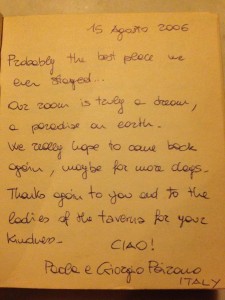 15 Agosto 2006
Probably the best place we
ever stayed...
Our room is truly a dream,
a paradise on earth.
We really hope to come back
again, maybe for more days.
Thanks again to you and to the
ladies of the taverna for your
kindness.
CIAO!
Paola e Giorgio
ITALY